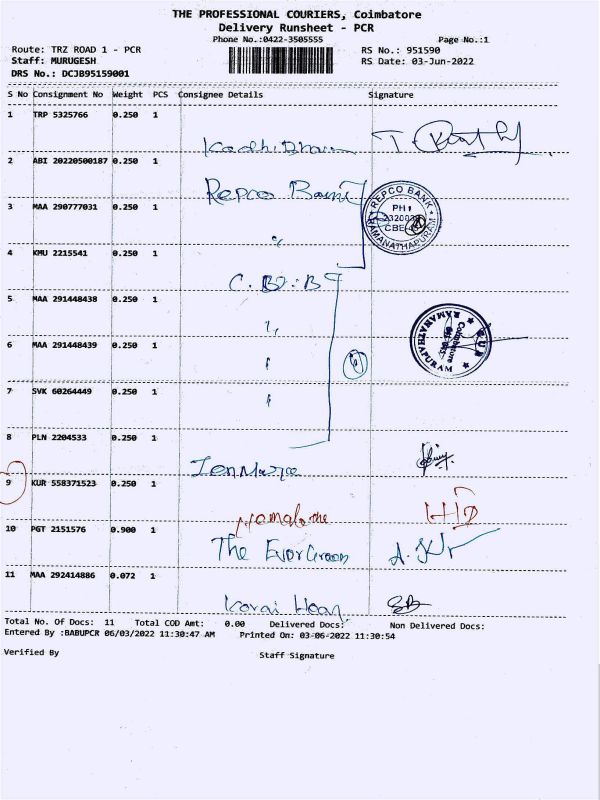 THE PROFESSIONAL COURIERS, Coimbatore
Delivery Runsheet - PCR
Phone No.:0422-3505555
Page No.:1
Route: TRZ ROAD 1 - PCR
RS No.: 951590
Staff: MURUGESH
RS Date: 03-Jun-2022
DRS No.: DCJB95159001
S No Consignment No Weight PCS Consignee Details Signature
1 TRP 5325766 0.250 1
2 ABI 20220500187 0.250 1
Repco Bank
REPCO BANK
PH:
CBE-
RAMANATHAPURAM
3 MAA 290777031 0.250 1
4 KMU 2215541 0.250 1
5 MAA 291448438 0.250 1
Coimbatore
RAMANATHAPURAM
6 MAA 291448439 0.250 1
4
7 SVK 60264449 0.250 1
8 PLN 2204533 0.250 1
9 KUR 558371523 0.250 1
10 PGT 2151576 0.900 1
The EverGreen
11 MAA 292414886 0.072 1
Total No. Of Docs: 11 Total COD Amt: 0.00 Delivered Docs: Non Delivered Docs:
Entered By :BABUPCR 06/03/2022 11:30:47 AM Printed On: 03-06-2022 11:30:54
Verified By Staff Signature